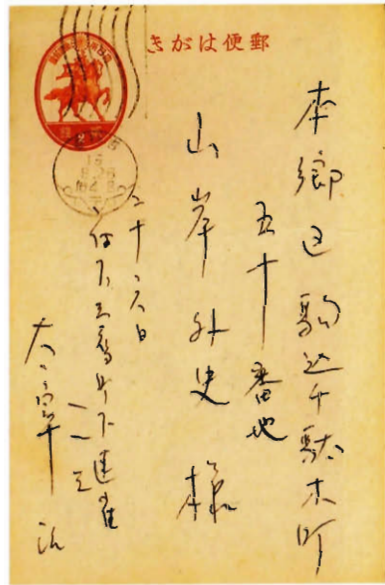 郵便はがき
本郷区駒込千駄木町
五十番地
山岸外史様
二十六日
府下三鷹町下連雀
一一三
太宰治